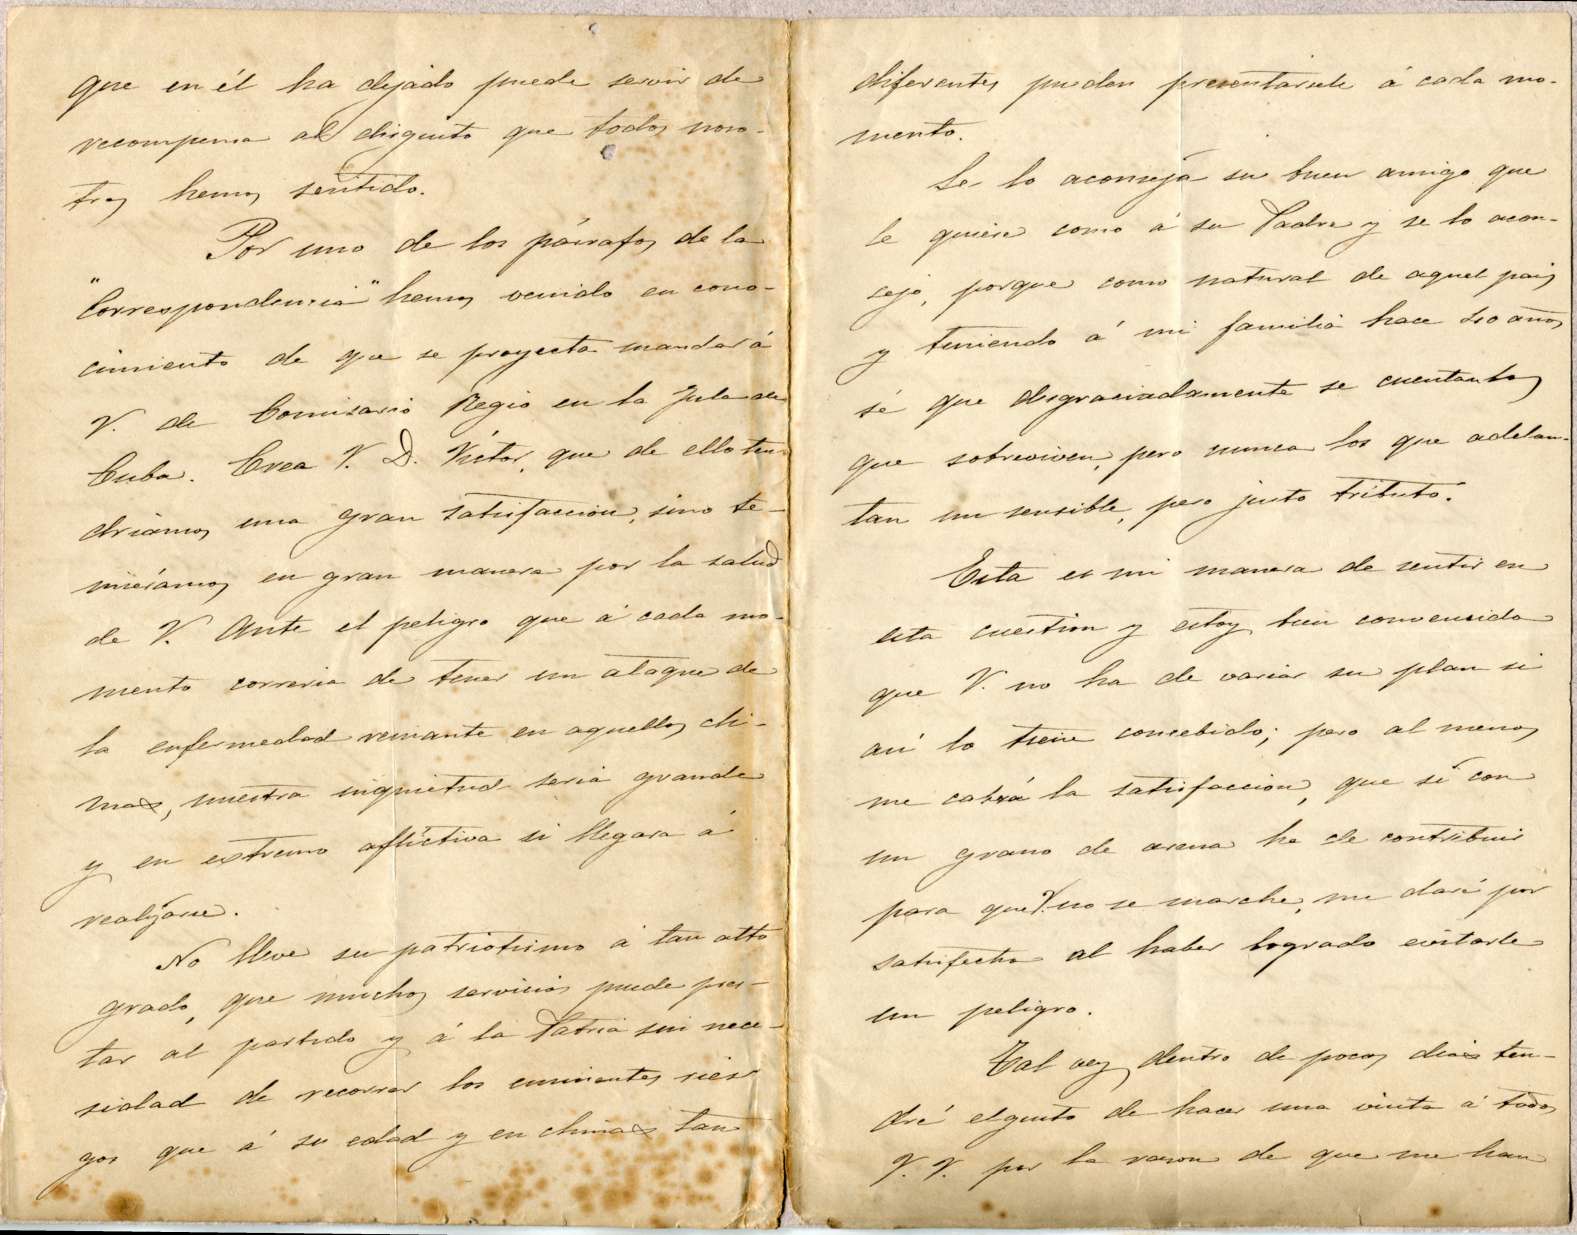 que en él ha dejado puede servir de
recompensa al disgusto que todos noso-
tros hemos sentido.
Por uno de los párrafos de la
"Correspondencia" hemos venido en cono-
cimiento de que se proyecta mandar á
V. de Comisario Regio en la Isla de
Cuba. Crea V. D. Víctor, que de ello ten-
driamos una gran satisfaccion, sino te-
miéramos en gran manera por la salud
de V. Ante el peligro que á cada mo-
mento correria de tener un ataque de
la enfermedad reinante en aquellos cli-
mas, nuestra inquietud seria grande
y en extremo aflictiva si llegara á
realizarse.
No lleve su patriotismo á tan alto
grado, que muchos servicios puede pres-
tar al partido y á la Patria sin nece-
sidad de recorrer los eminentes ries-
gos que á su edad y en climas tan
diferentes pueden presentarsele á cada mo-
mento.
Se lo aconseja su buen amigo que
le quiere como á su Padre y se lo acon-
sejo, porque como natural de aquel pais
y teniendo á mi familia hace años
sé que desgraciadamente se cuentan los
que sobreviven, pero nunca los que adelan-
tan un sensible, pero justo tributo.
Esta es mi manera de sentir en
esta cuestion y estoy bien convencido
que V. no ha de variar su plan si
así lo tiene concebido; pero al menos
me cabrá la satisfaccion, que si con
un grano de arena he de contribuir
para que V. no se marche, me daré por
satisfecho al haber logrado evitarle
un peligro.
Tal vez dentro de pocos dias ten-
dré el gusto de hacer una visita á todos
V. V. por la razon de que me han